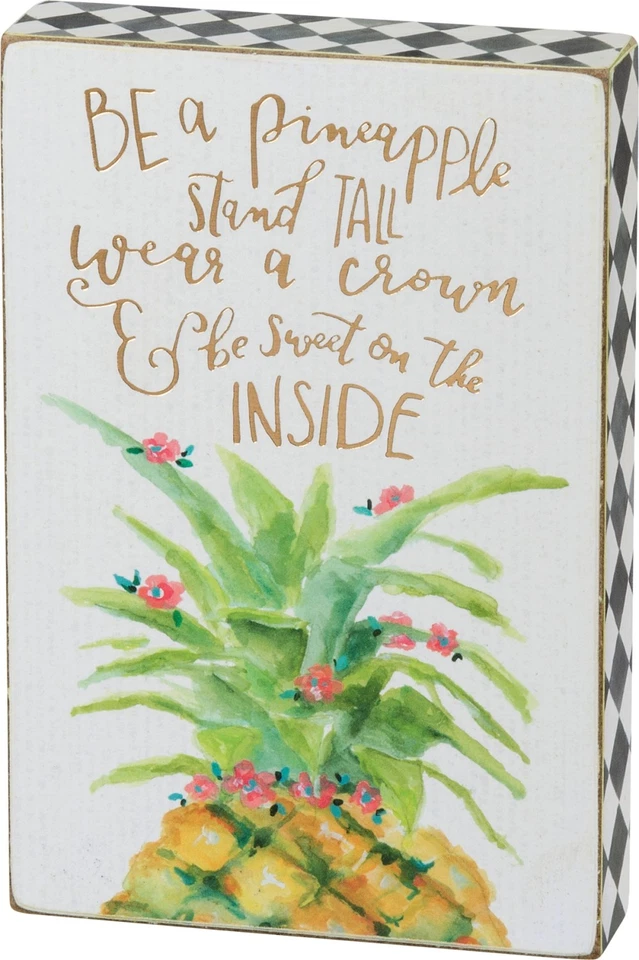 BE a pineapple
stand TALL
wear a crown
& be sweet on the
INSIDE